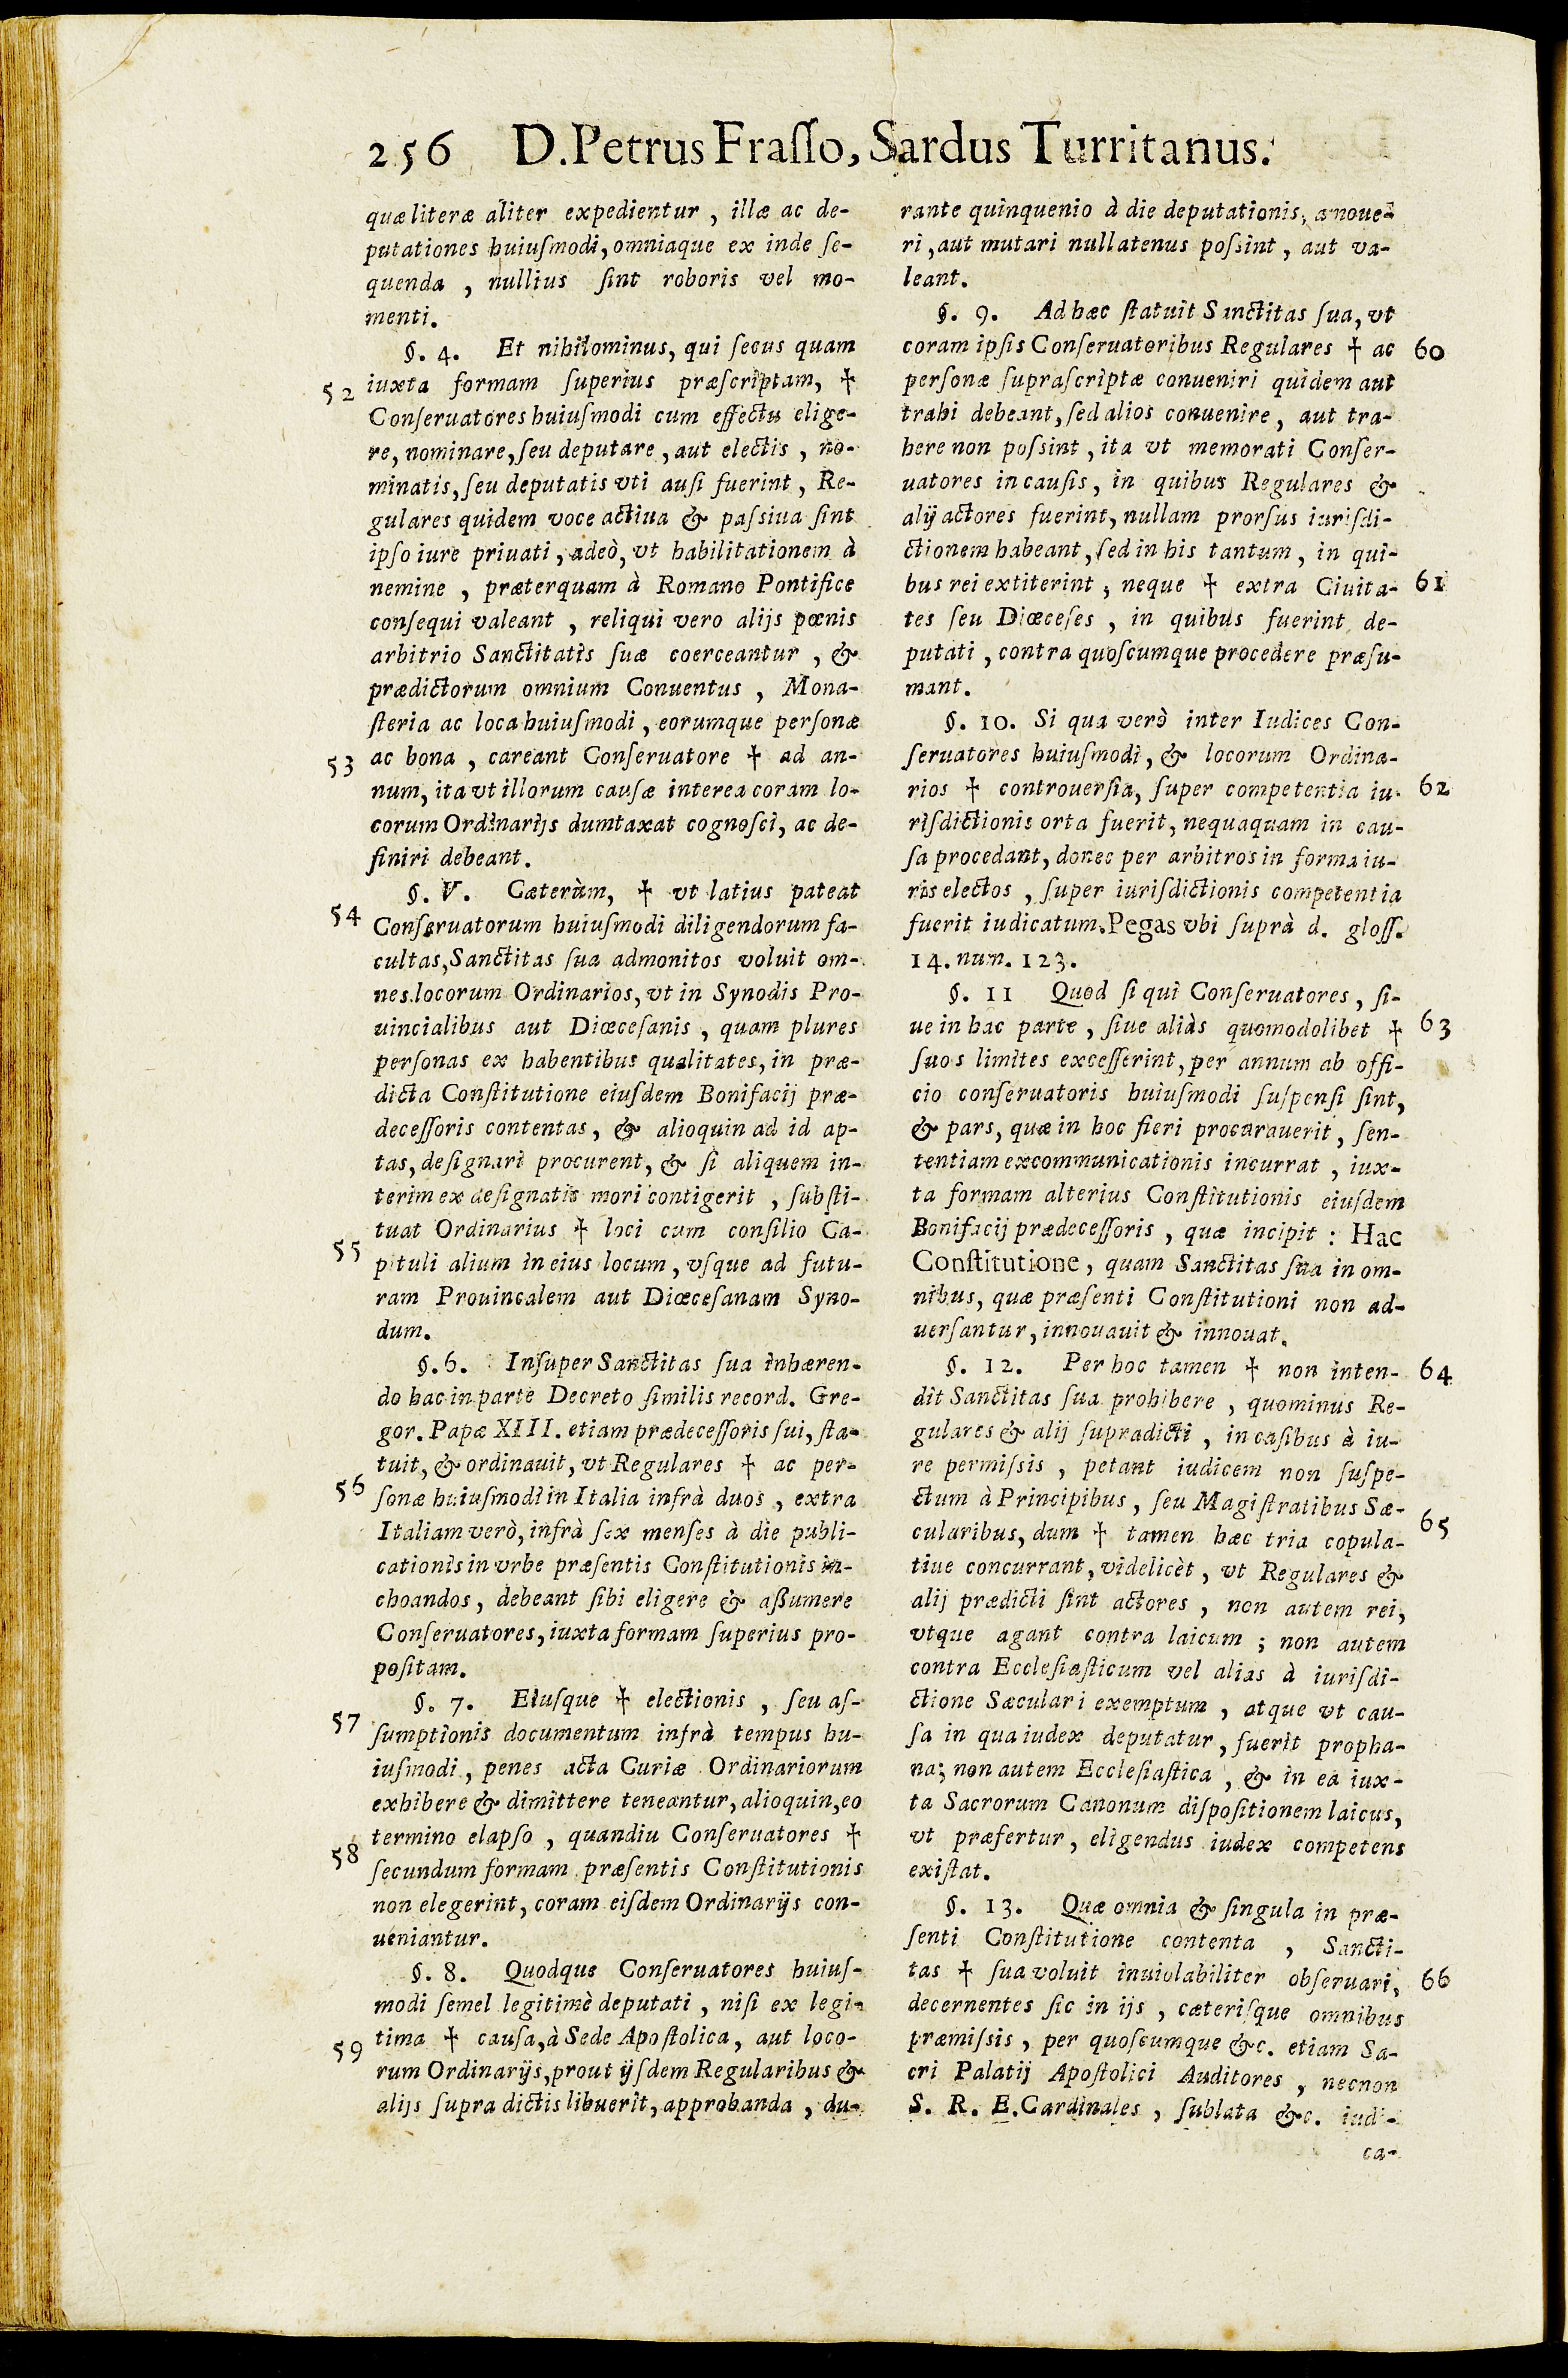 256 D. Petrus Fraſſo, Sardus Turritanus.
quæ literæ aliter expedientur, illæ ac de-
putationes huiuſmodi, omniaque ex inde ſe-
quenda, nullius ſint roboris vel mo-
menti.
§. 4. Et nihilominus, qui ſecus quam
52 iuxta formam ſuperius præſcriptam, †
Conſeruatores huiuſmodi cum effectu elige-
re, nominare, ſeu deputare, aut electis, no-
minatis, ſeu deputatis vti auſi fuerint, Re-
gulares quidem voce actiua & paſsiua ſint
ipſo iure priuati, adeò, vt habilitationem à
nemine, præterquam à Romano Pontifice
conſequi valeant, reliqui vero alijs pœnis
arbitrio Sanctitatis ſuæ coerceantur, &
prædictorum omnium Conuentus, Mona-
ſteria ac loca huiuſmodi, eorumque perſonæ
53 ac bona, careant Conſeruatore † ad an-
num, ita vt illorum cauſæ interea coram lo-
corum Ordinarijs dumtaxat cognoſci, ac de-
finiri debeant.
§. V. Cæterùm, † vt latius pateat
54 Conſeruatorum huiuſmodi diligendorum fa-
cultas, Sanctitas ſua admonitos voluit om-
nes locorum Ordinarios, vt in Synodis Pro-
uincialibus aut Diœceſanis, quam plures
perſonas ex habentibus qualitates, in præ-
dicta Conſtitutione eiuſdem Bonifacij præ-
deceſſoris contentas, & alioquin ad id ap-
tas, deſignari procurent, & ſi aliquem in-
terim ex deſignatis mori contigerit, ſubſti-
tuat Ordinarius † loci cum conſilio Ca-
55 pituli alium in eius locum, vſque ad futu-
ram Prouincalem aut Diœceſanam Syno-
dum.
§. 6. Inſuper Sanctitas ſua inhæren-
do hac in parte Decreto ſimilis record. Gre-
gor. Papæ XIII. etiam prædeceſſoris ſui, ſta-
tuit, & ordinauit, vt Regulares † ac per-
56 ſonæ huiuſmodi in Italia infrà duos, extra
Italiam verò, infrà ſex menſes à die publi-
cationis in vrbe præſentis Conſtitutionis in-
choandos, debeant ſibi eligere & aſſumere
Conſeruatores, iuxta formam ſuperius pro-
poſitam.
§. 7. Eiuſque † electionis, ſeu aſ-
57 ſumptionis documentum infrà tempus hu-
iuſmodi, penes acta Curiæ Ordinariorum
exhibere & dimittere teneantur, alioquin, eo
termino elapſo, quandiu Conſeruatores †
58 ſecundum formam præſentis Conſtitutionis
non elegerint, coram eiſdem Ordinarijs con-
ueniantur.
§. 8. Quodque Conſeruatores huiuſ-
modi ſemel legitimè deputati, niſi ex legi-
59 tima † cauſa, à Sede Apoſtolica, aut loco-
rum Ordinarijs, prout ijſdem Regularibus &
alijs ſupra dictis libuerit, approbanda, du-
rante quinquenio à die deputationis, amoue-
ri, aut mutari nullatenus poſsint, aut va-
leant.
§. 9. Ad hæc ſtatuit Sanctitas ſua, vt
coram ipſis Conſeruatoribus Regulares † ac 60
perſonæ ſupraſcriptæ conueniri quidem aut
trahi debeant, ſed alios conuenire, aut tra-
here non poſsint, ita vt memorati Conſer-
uatores in cauſis, in quibus Regulares &
alij actores fuerint, nullam prorſus iuriſdi-
ctionem habeant, ſed in his tantum, in qui-
bus rei extiterint, neque † extra Ciuita- 61
tes ſeu Diœceſes, in quibus fuerint de-
putati, contra quoſcumque procedere præſu-
mant.
§. 10. Si qua verò inter Iudices Con-
ſeruatores huiuſmodi, & locorum Ordina-
rios † controuerſia, ſuper competentia iu- 62
riſdictionis orta fuerit, nequaquam in cau-
ſa procedant, donec per arbitros in forma iu-
ris electos, ſuper iuriſdictionis competentia
fuerit iudicatum. Pegas vbi ſuprà d. gloſſ.
14. num. 123.
§. 11 Quod ſi qui Conſeruatores, ſi-
ue in hac parte, ſiue aliàs quomodolibet † 63
ſuos limites exceſſerint, per annum ab offi-
cio conſeruatoris huiuſmodi ſuſpenſi ſint,
& pars, quæ in hoc fieri procurauerit, ſen-
tentiam excommunicationis incurrat, iux-
ta formam alterius Conſtitutionis eiuſdem
Bonifacij prædeceſſoris, quæ incipit : Hac
Conſtitutione, quam Sanctitas ſua in om-
nibus, quæ præſenti Conſtitutioni non ad-
uerſantur, innouauit & innouat.
§. 12. Per hoc tamen † non inten- 64
dit Sanctitas ſua prohibere, quominus Re-
gulares & alij ſupradicti, in caſibus à iu-
re permiſsis, petant iudicem non ſuſpe-
ctum à Principibus, ſeu Magiſtratibus Sæ-
cularibus, dum † tamen hæc tria copula- 65
tiue concurrant, videlicèt, vt Regulares &
alij prædicti ſint actores, non autem rei,
vtque agant contra laicum ; non autem
contra Eccleſiaſticum vel alias à iuriſdi-
ctione Sæculari exemptum, atque vt cau-
ſa in qua iudex deputatur, fuerit propha-
na; non autem Eccleſiaſtica, & in ea iux-
ta Sacrorum Canonum diſpoſitionem laicus,
vt præfertur, eligendus iudex competens
exiſtat.
§. 13. Quæ omnia & ſingula in præ-
ſenti Conſtitutione contenta, Sancti-
tas † ſua voluit inuiolabiliter obſeruari, 66
decernentes ſic in ijs, cæteriſque omnibus
præmiſsis, per quoſcumque &c. etiam Sa-
cri Palatij Apoſtolici Auditores, necnon
S. R. E. Cardinales, ſublata &c. iudi-
ca-